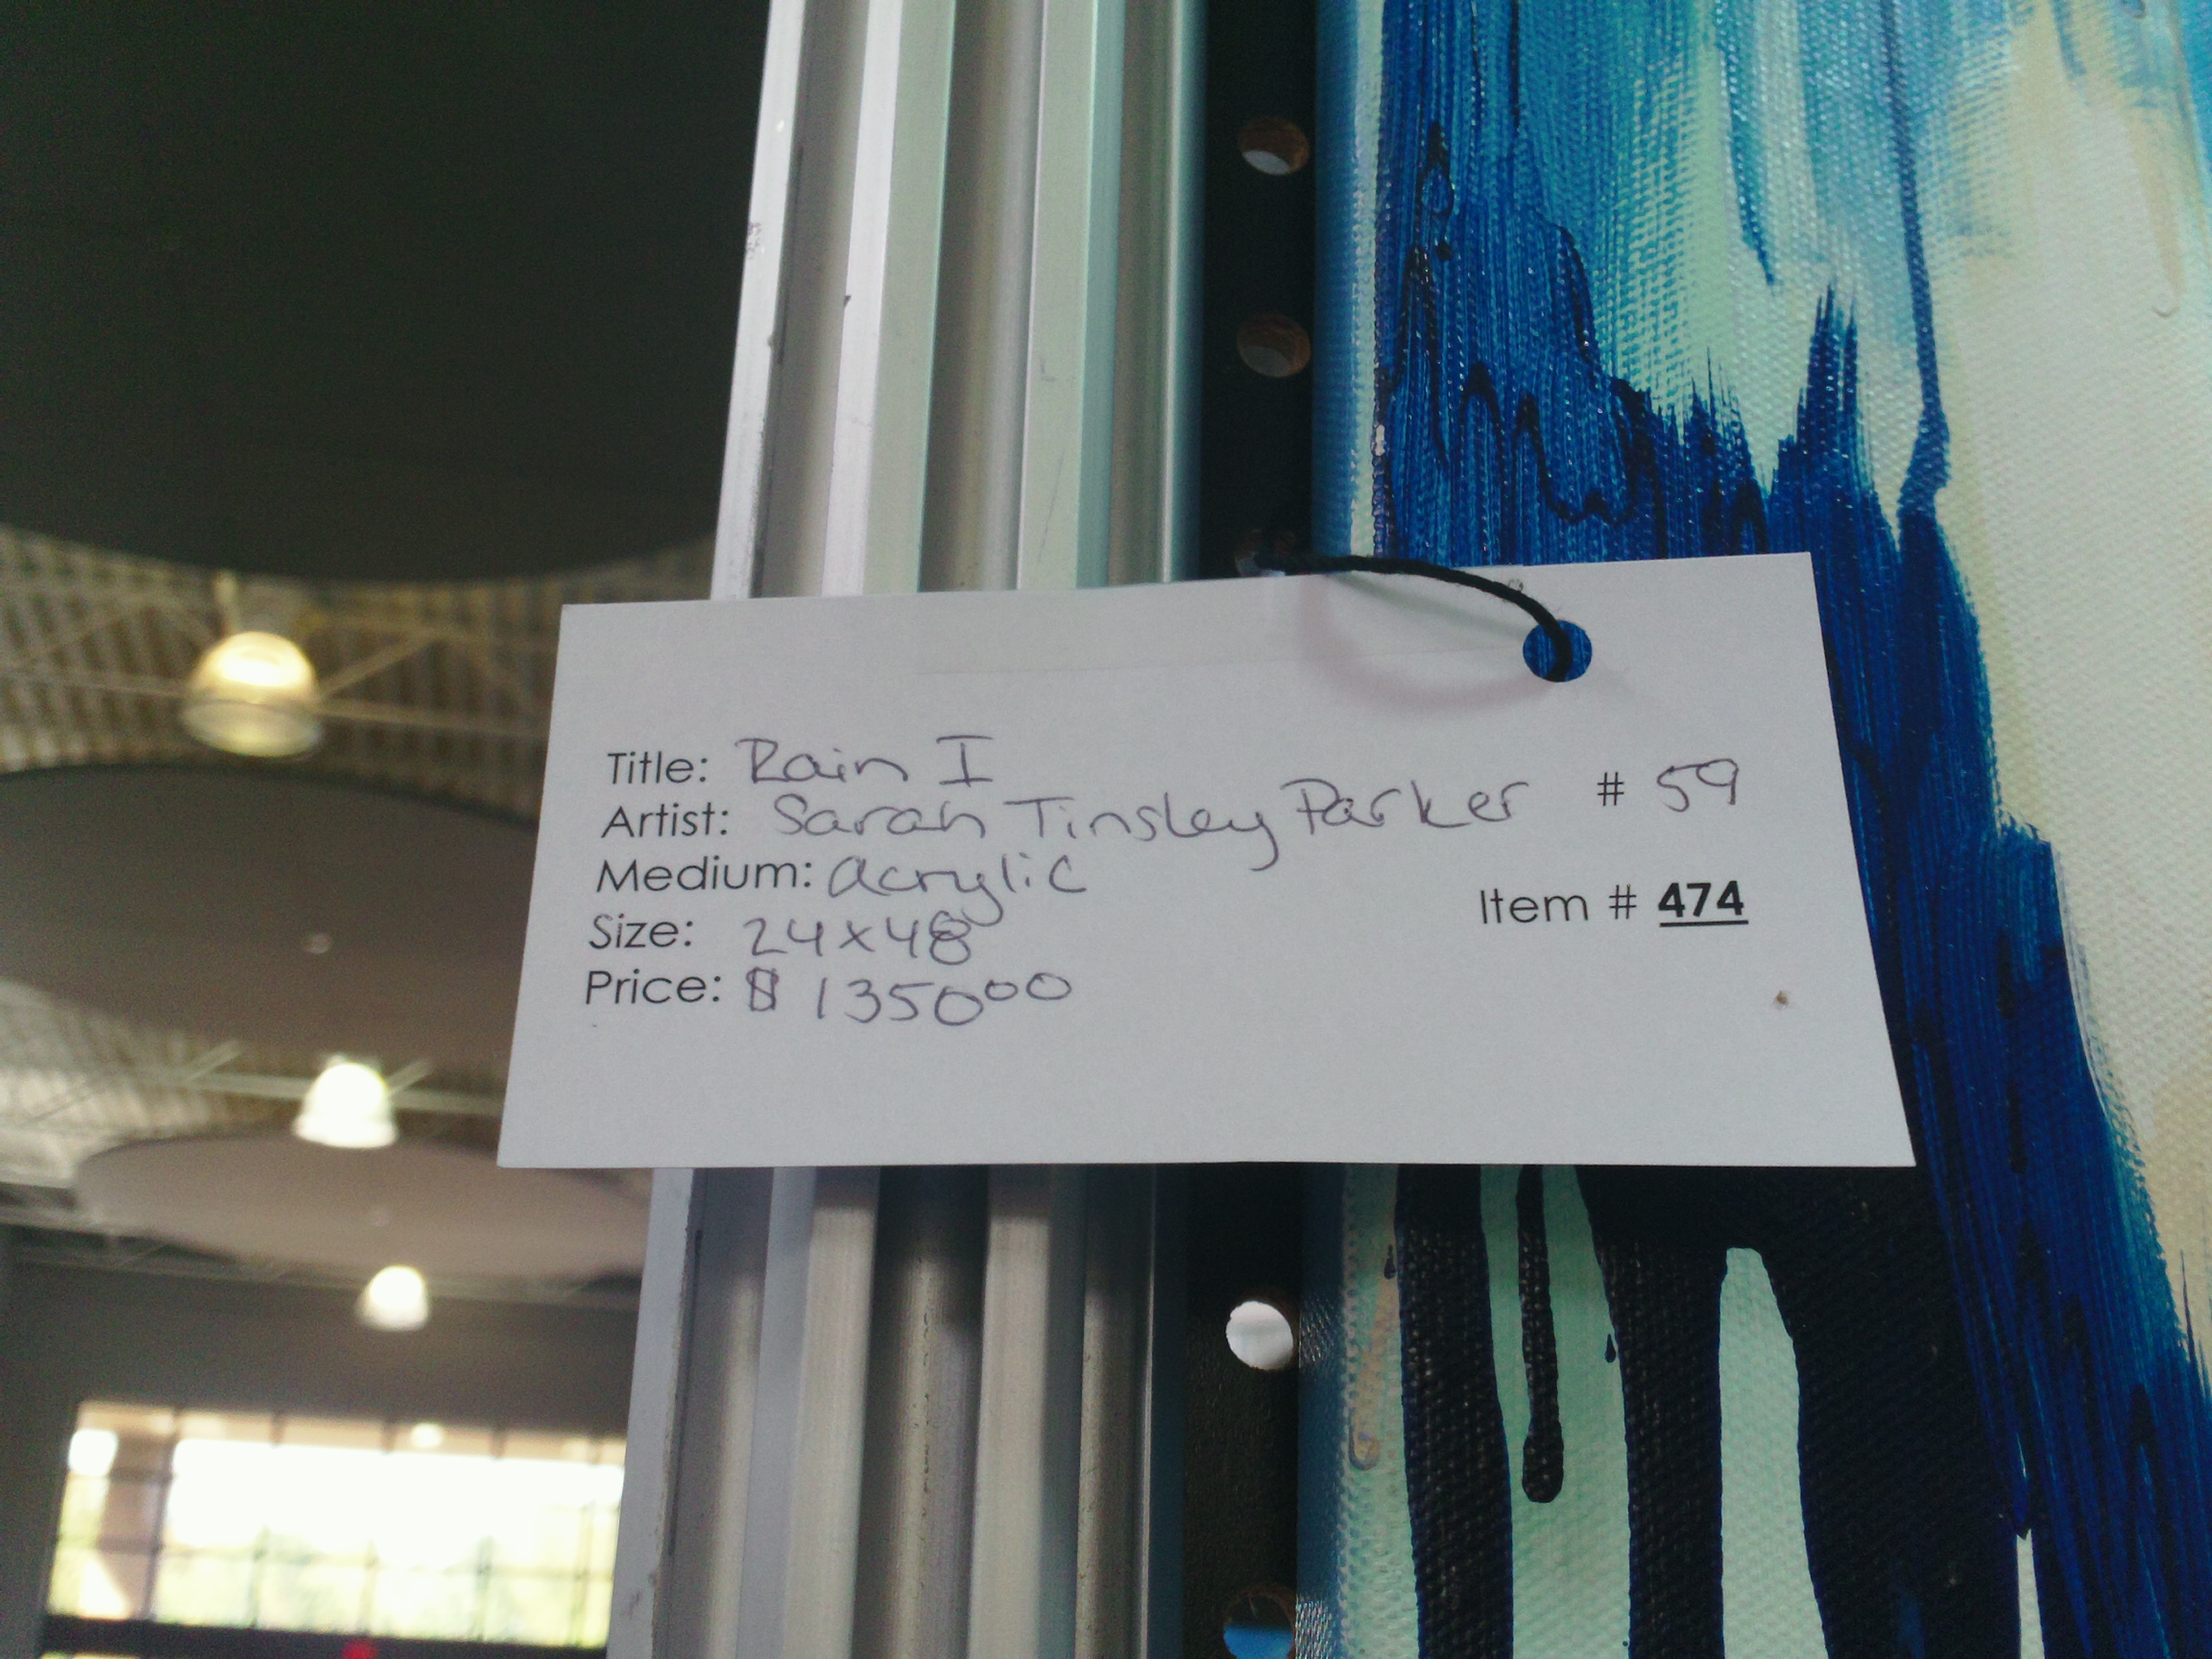 Title: Rain I
Artist: Sarah Tinsley Parker # 59
Medium: acrylic
Item # 474
Size: 24x48
Price: $ 135000